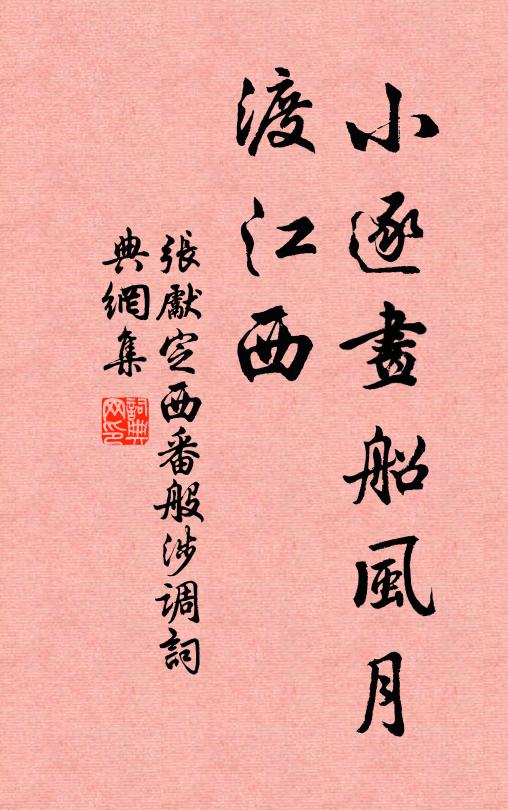 小逐畫船風月
渡江西
張獻定西番般涉调詞
典網集
詞典網印